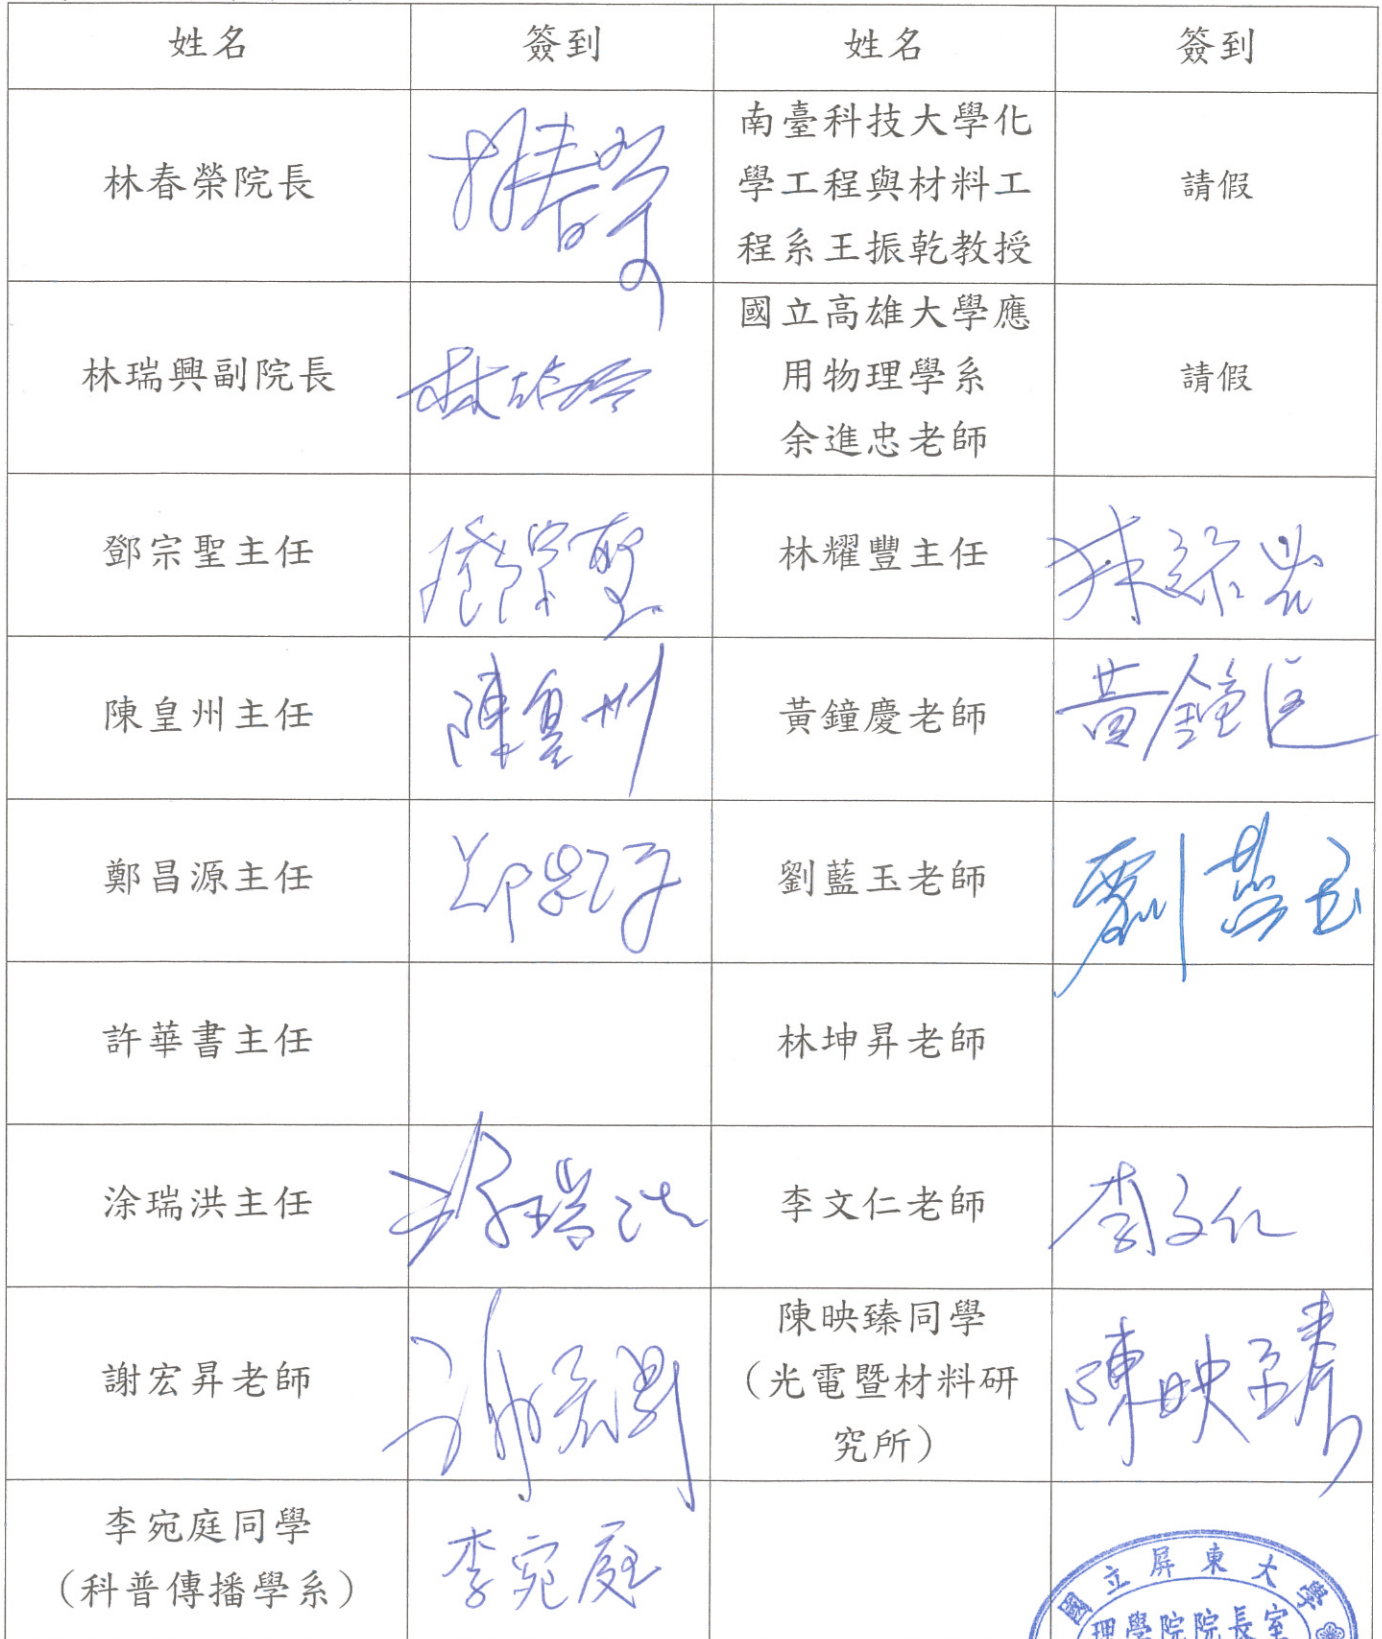 姓名 簽到 姓名 簽到
林春榮院長 林春榮 南臺科技大學化
學工程與材料工
程系王振乾教授 請假
林瑞興副院長 國立高雄大學應
用物理學系
余進忠老師 請假
鄧宗聖主任 鄧宗聖 林耀豐主任
陳皇州主任 陳皇州 黃鐘慶老師 黃鐘慶
鄭昌源主任 鄭昌源 劉藍玉老師 劉藍玉
許華書主任 林坤昇老師
涂瑞洪主任 涂瑞洪 李文仁老師 李文仁
謝宏昇老師 陳映臻同學
(光電暨材料研
究所) 陳映臻
李宛庭同學
(科普傳播學系) 李宛庭
國立屏東大學
理學院院長室